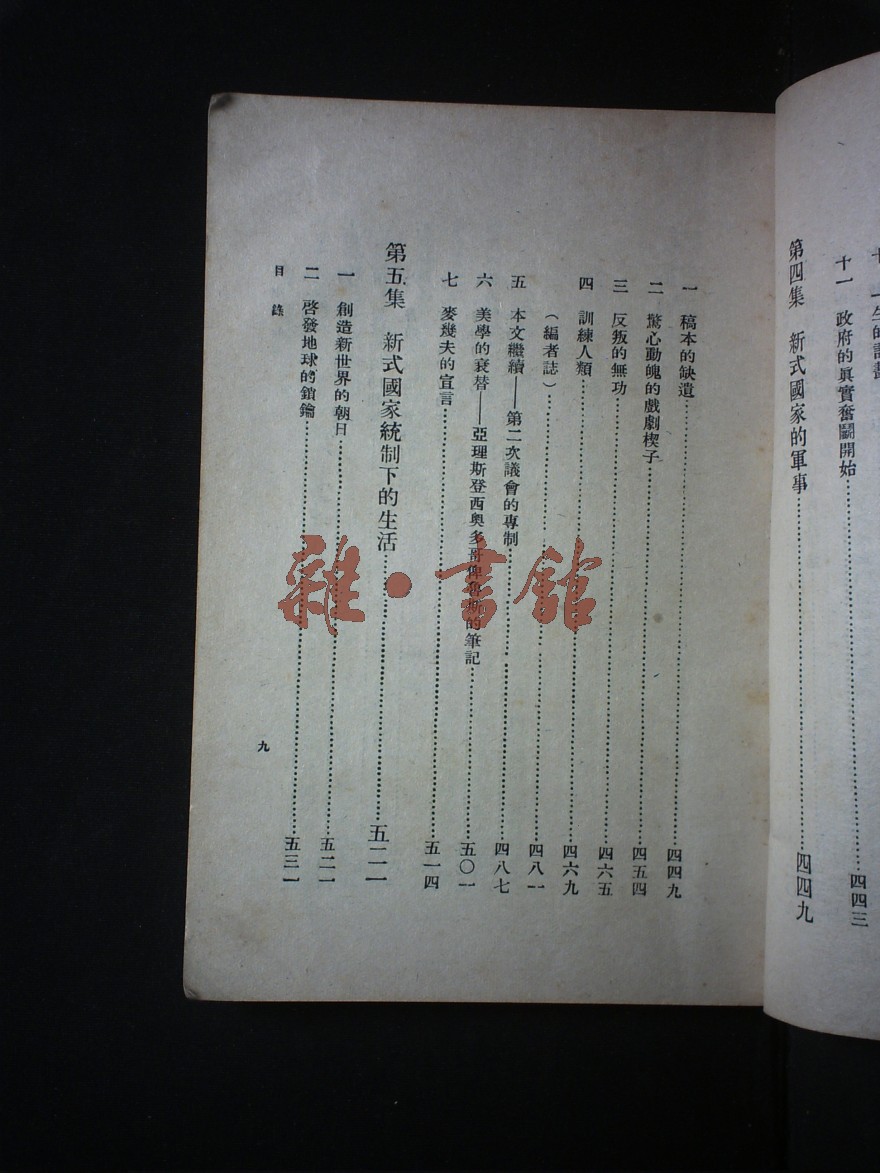 十一 政府的眞實奮鬬開始……四四三
第四集 新式國家的軍事……四四九
一 稿本的缺遺……四四九
二 驚心動魄的戲劇楔子……四五四
三 反叛的無功……四六五
四 訓練人類……四六九
（編者誌）……四八一
五 本文繼續——第二次議會的專制……四八七
六 美學的衰替——亞理斯登西奧多哥 斯的筆記……五〇一
七 麥幾夫的宣言……五一四
第五集 新式國家統制下的生活……五二一
一 創造新世界的朝日……五二一
二 啓發地球的鎖鑰……五三一
目錄
九
雜·書館